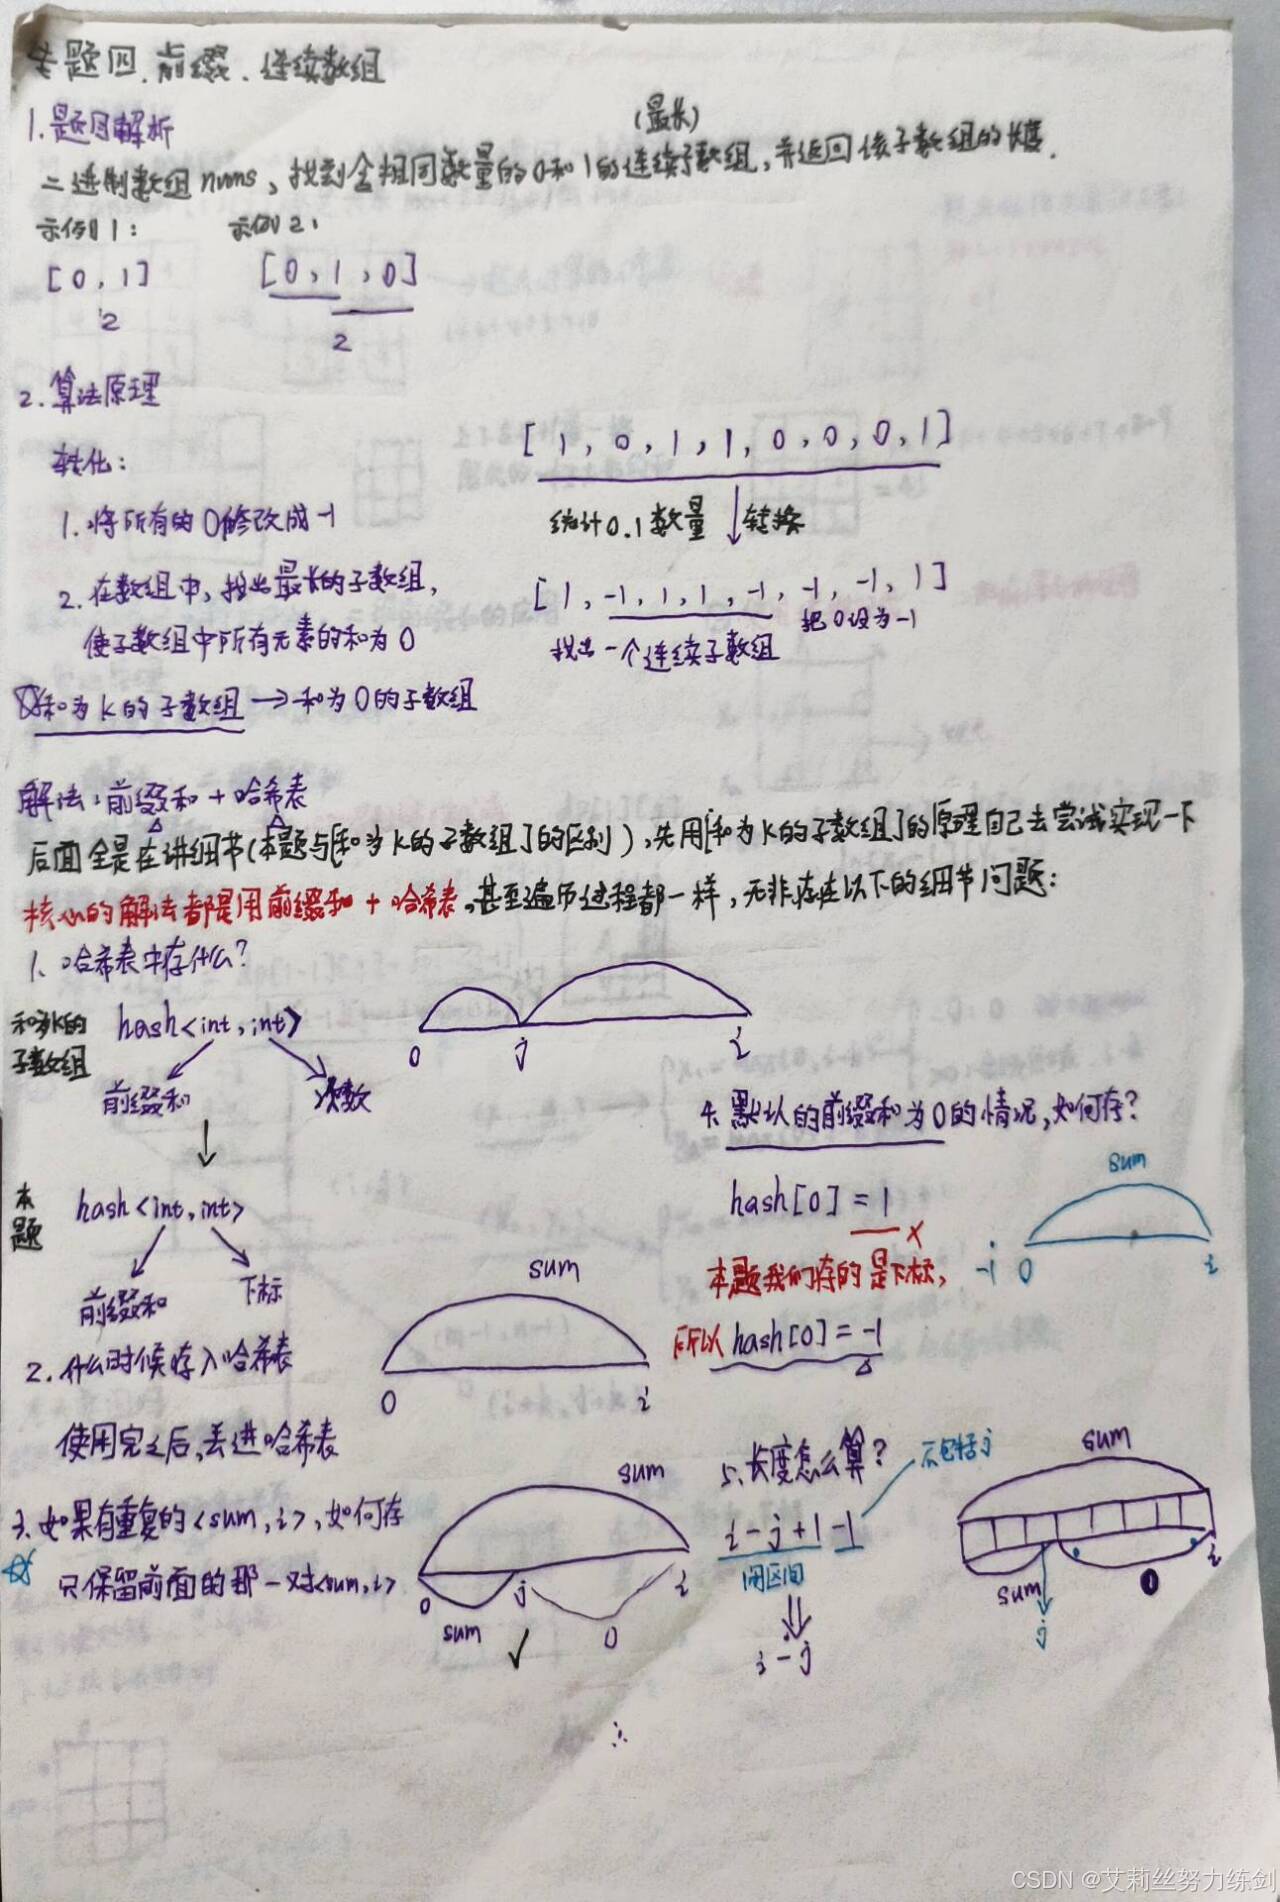 专题四.前缀.连续数组
1.题目解析
(最长)
二进制数组nums,找到含相同数量的0和1的连续子数组,并返回该子数组的长度.
示例1: 示例2:
[0,1] [0,1,0]
2 2
2.算法原理
转化:
1.将所有的0修改成-1
2.在数组中,找出最长的子数组,
使子数组中所有元素的和为0
[1,0,1,1,0,0,0,1]
统计0.1数量 转换
[1,-1,1,1,-1,-1,-1,1]
把0设为-1
找出一个连续子数组
☆和为K的子数组→和为0的子数组
解法:前缀和+哈希表
后面全是在讲细节(本题与[和为K的子数组]的区别),先用[和为K的子数组]的原理自己去尝试实现一下
核心的解法都是用前缀和+哈希表,甚至遍历过程都一样,无非存在以下的细节问题:
1、哈希表中存什么?
和为K的
子数组
hash<int,int>
前缀和 次数
0 j i
本题
hash<int,int>
前缀和 下标
2.什么时候存入哈希表
使用完之后,丢进哈希表
sum
0 i
3.如果有重复的<sum,i>,如何存
☆ 只保留前面的那一对<sum,i>
sum
0 j i
sum 0
✓
4.默认的前缀和为0的情况,如何存?
hash[0]=1 ×
本题我们存的是下标,
所以hash[0]=-1
sum
-1 0 i
5、长度怎么算?
不包括j
i-j+1-1
闭区间
i-j
sum
i
sum 0
j
∴
CSDN @艾莉丝努力练剑